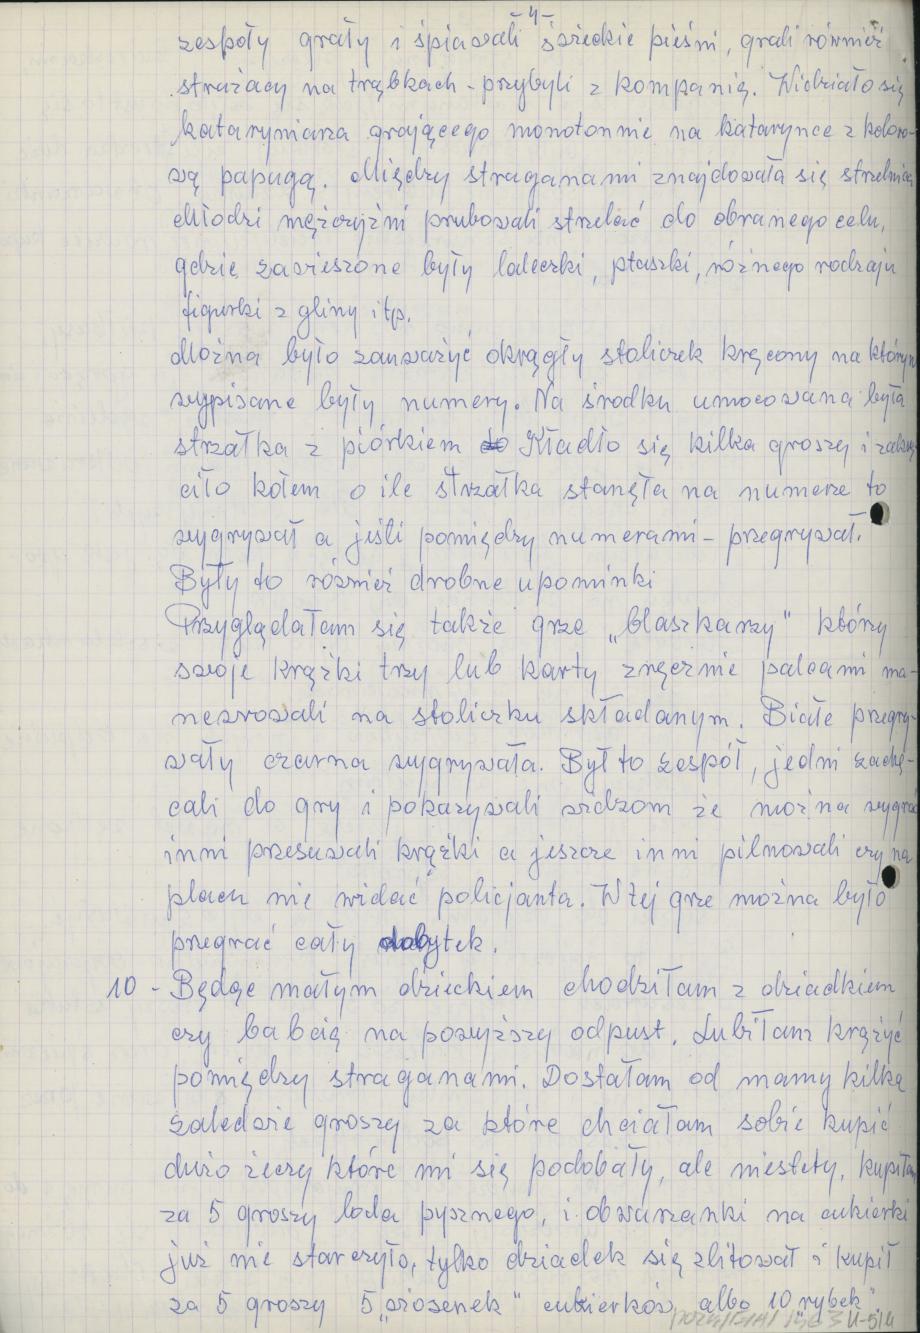 -4-
zespoły grały i śpiewali świeckie pieśni, grali również
strażacy na trąbkach - przybyli z kompanią. Widziało się
kataryniarza grającego monotonnie na katarynce z koloro-
wą papugą. Między straganami znajdowała się strzelnica
Młodzi mężczyźni prubowali strzelać do obranego celu,
gdzie zawieszone były laleczki, ptaszki, różnego rodzaju
figurki z gliny itp.
Można było zauważyć okrągły stoliczek kręcony na którym
wypisane były numery. Na środku umocowana była
strzałka z piórkiem Kładło się kilka groszy i zakrę
ciło kołem o ile strzałka stanęła na numerze to
wygrywał a jeśli pomiędzy numerami - przegrywał.
Były to również drobne upominki
Przyglądałam się także grze „blaszkarzy" którzy
swoje krążki trzy lub karty zręcznie palcami ma-
newrowali na stoliczku składanym. Białe przegry-
wały czarna wygrywała. Był to zespół, jedni zachę-
cali do gry i pokazywali widzom że można wygrać
inni przesuwali krążki a jeszcze inni pilnowali czy na
placu nie widać policjanta. W tej grze można było
przegrać cały dobytek.
10 - Będąc małym dzieckiem chodziłam z dziadkiem
czy babcią na powyższy odpust. Lubiłam krążyć
pomiędzy straganami. Dostałam od mamy kilka
zaledwie groszy za które chciałam sobie kupić
dużo żeczy które mi się podobały, ale niestety, kupiłam
za 5 groszy loda pysznego, i obwarzanki na cukierki
już nie starczyło, tylko dziadek się zlitował i kupił
za 5 groszy 5 „piosenek" cukierków albo 10 „rybek".